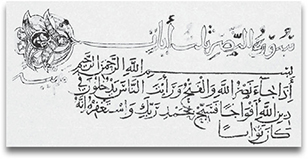 سُورَةُ النَّصر ثلث أيات
بسم الله الرحمن الرحيم
إذا جاء نصر الله والفتح ورأيت الناس يدخلون في
دين الله أفواجا فسبح بحمد ربك واستغفره إنه
كان توابا